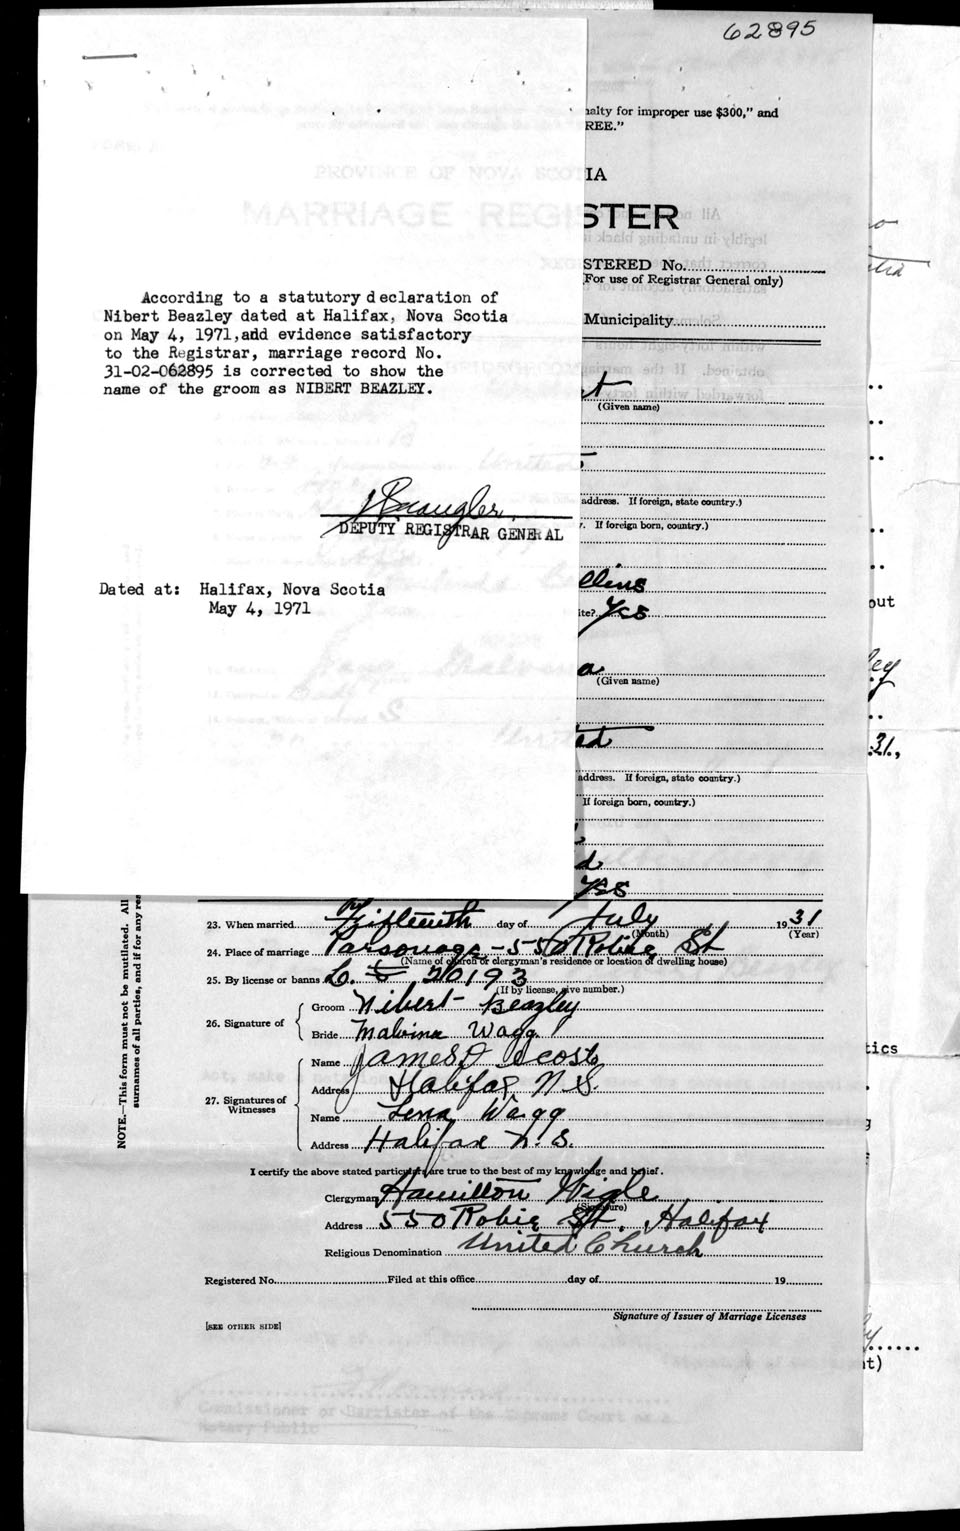 62895
nalty for improper use $300," and
REE."
IA
STER
STERED No.
(For use of Registrar General only)
Municipality
According to a statutory declaration of
Nibert Beazley dated at Halifax, Nova Scotia
on May 4, 1971,and evidence satisfactory
to the Registrar, marriage record No.
31-02-062895 is corrected to show the
name of the groom as NIBERT BEAZLEY.
DEPUTY REGISTRAR GENERAL
Dated at: Halifax, Nova Scotia
May 4, 1971
(Given name)
address. If foreign, state country.)
If foreign born, country.)
llins
ite? Yes
a
(Given name)
ed
address. If foreign, state country.)
If foreign born, country.)
d
Yes
out
ey
31,
NOTE.—This form must not be mutilated. All
surnames of all parties, and if for any rea
23. When married Fifteenth day of July 1931
(Month) (Year)
24. Place of marriage Parsonage - 550 Robie St
(Name of church or clergyman's residence or location of dwelling house)
25. By license or banns 20193
(If by license, give number.)
26. Signature of
Groom Nibert Beazley
Bride Malvina Wagg
27. Signatures of Witnesses
Name James D
Address Halifax N.S.
Name Lena Wagg
Address Halifax N.S.
I certify the above stated particulars are true to the best of my knowledge and belief.
Clergyman Hamilton Wigle
(Signature)
Address 550 Robie St., Halifax
Religious Denomination United Church
Registered No. Filed at this office day of 19
Signature of Issuer of Marriage Licenses
[SEE OTHER SIDE]
tics
t)